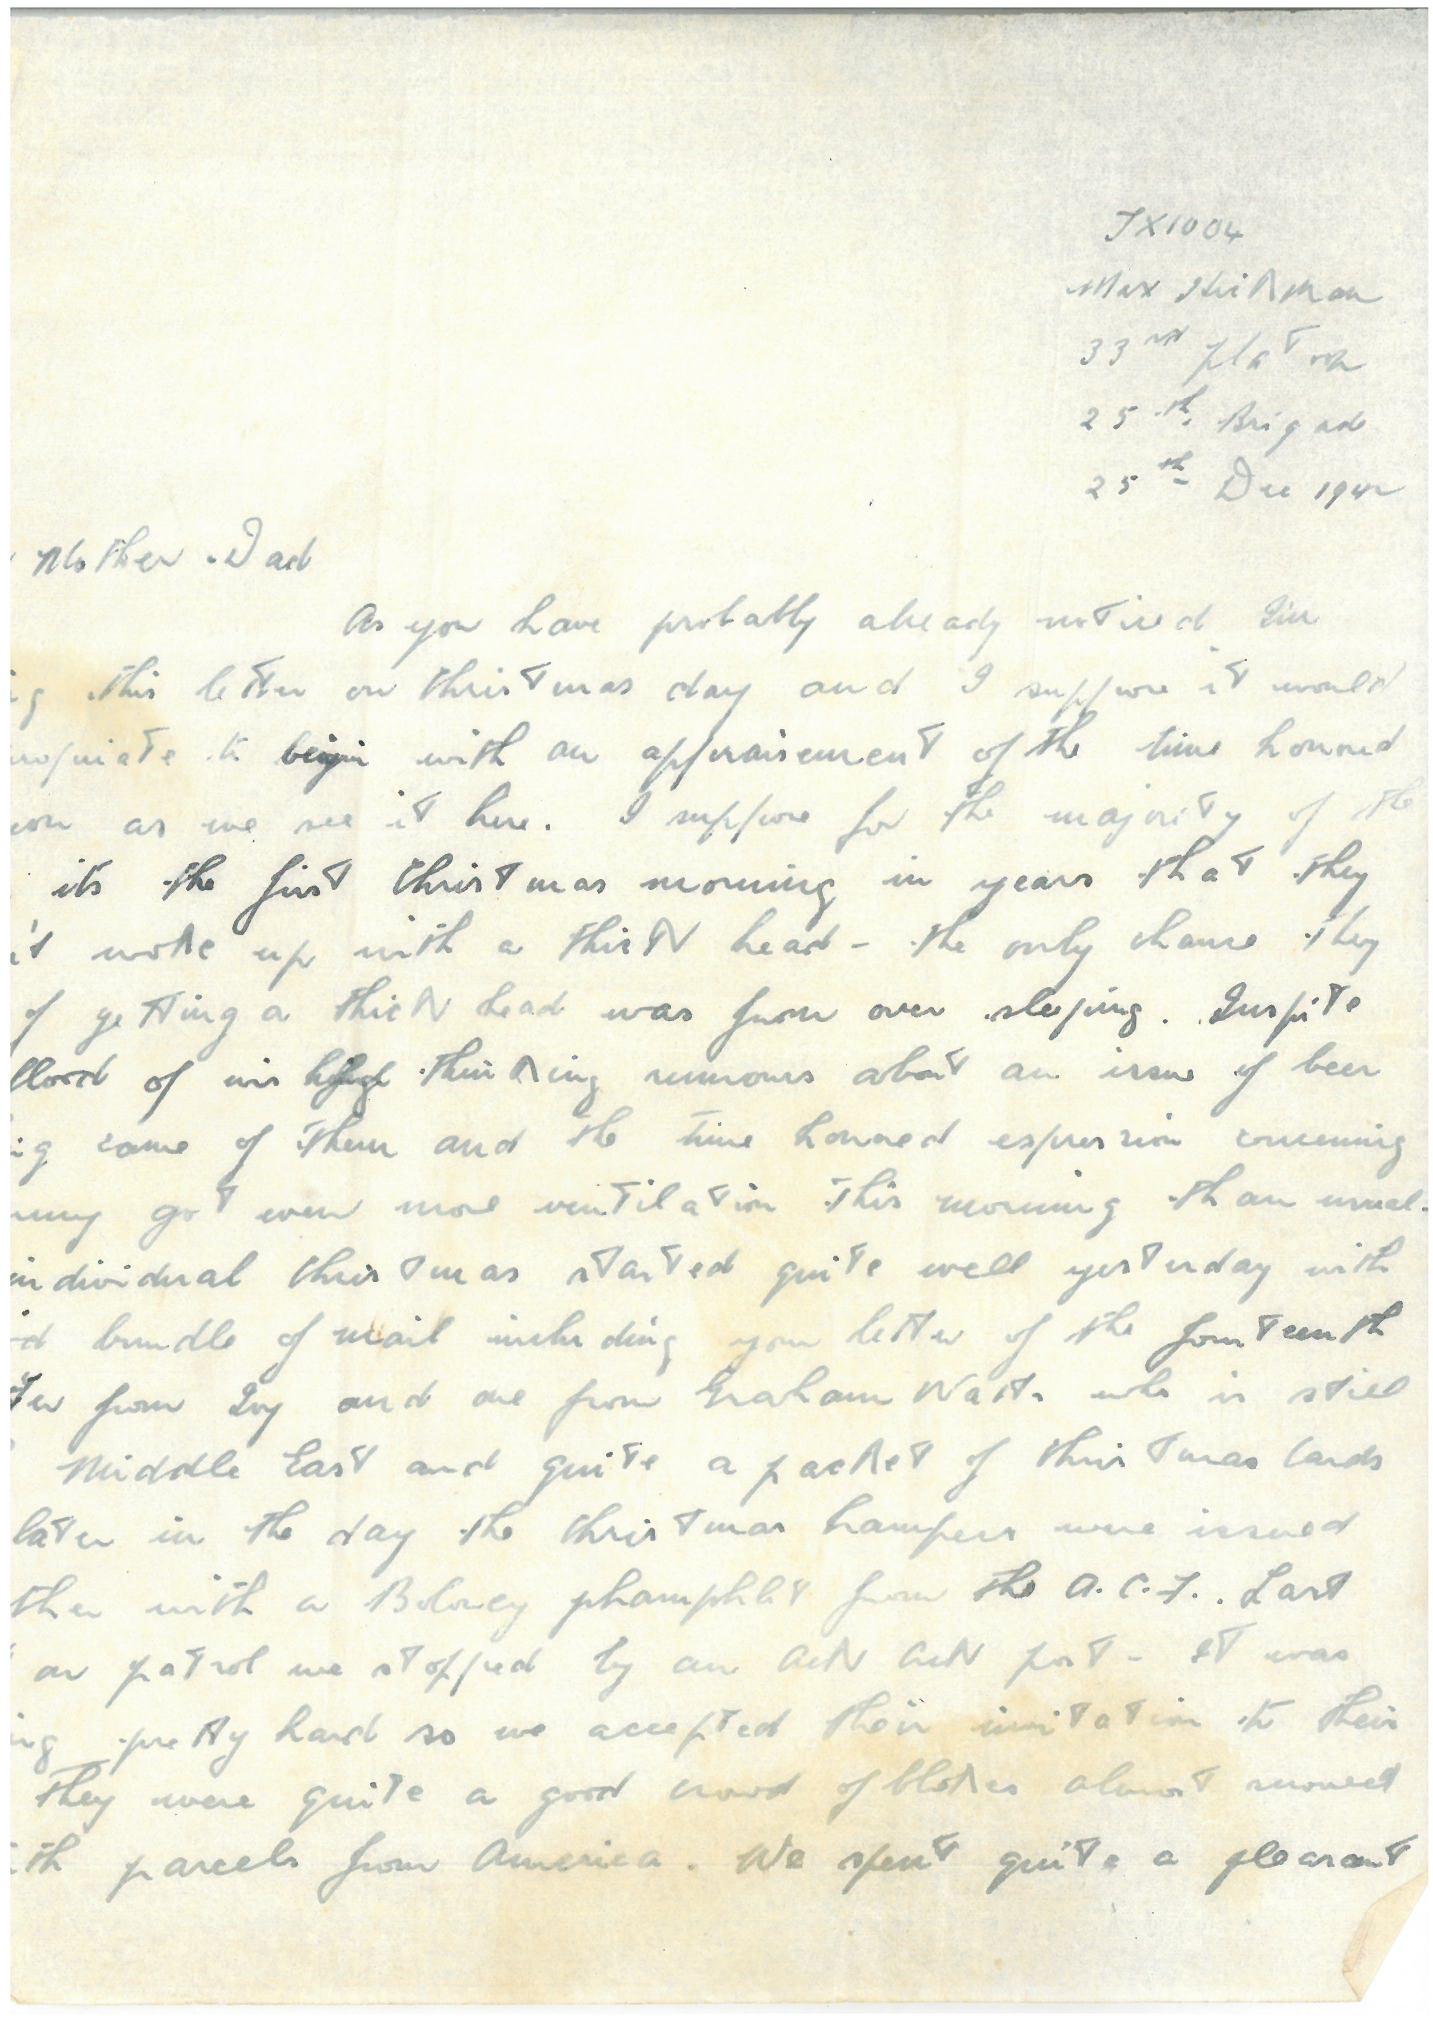 TX1004
Max Hickman
33rd platoon
25th. Brigade
25th Dec 1942
Mother & Dad
As you have probably already noticed I'm
this letter on Christmas day and I suppose it would
to begin with an appraisement of the time honoured
as we see it here. I suppose for the majority of the
its the first Christmas morning in years that they
woke up with a thick head - the only chance they
of getting a thick head was from over sleeping. Inspite
of thinking rumours about an issue of beer
came of them and the time honoured expression concerning
got even more ventilation this morning than usual.
individual Christmas started quite well yesterday with
bundle of mail including your letter of the fourteenth
from Ivy and one from Graham Watts who is still
Middle East and quite a packet of Christmas Cards
later in the day the Christmas hampers were issued
with a Boloney phamphlet from the A.C.F.. Last
on patrol we stopped by an Ack Ack post - it was
pretty hard so we accepted their invitation to their
They were quite a good crowd of blokes almost snowed
parcels from America. We spent quite a pleasant